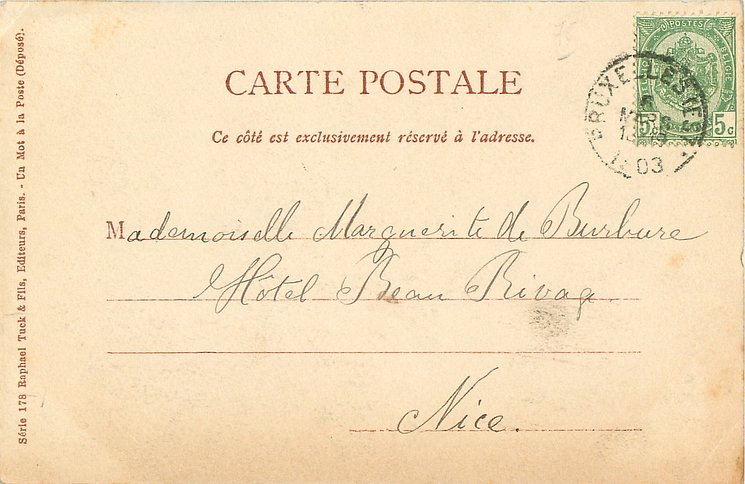 CARTE POSTALE
Ce côté est exclusivement réservé à l'adresse.
Mademoiselle Marguerite de Burbure
Hôtel Beau Rivage
Nice.
Série 178 Raphael Tuck & Fils, Editeurs, Paris. - Un Mot à la Poste (Déposé).
POSTES
5c 5c
BRUXELLES
MARS
03